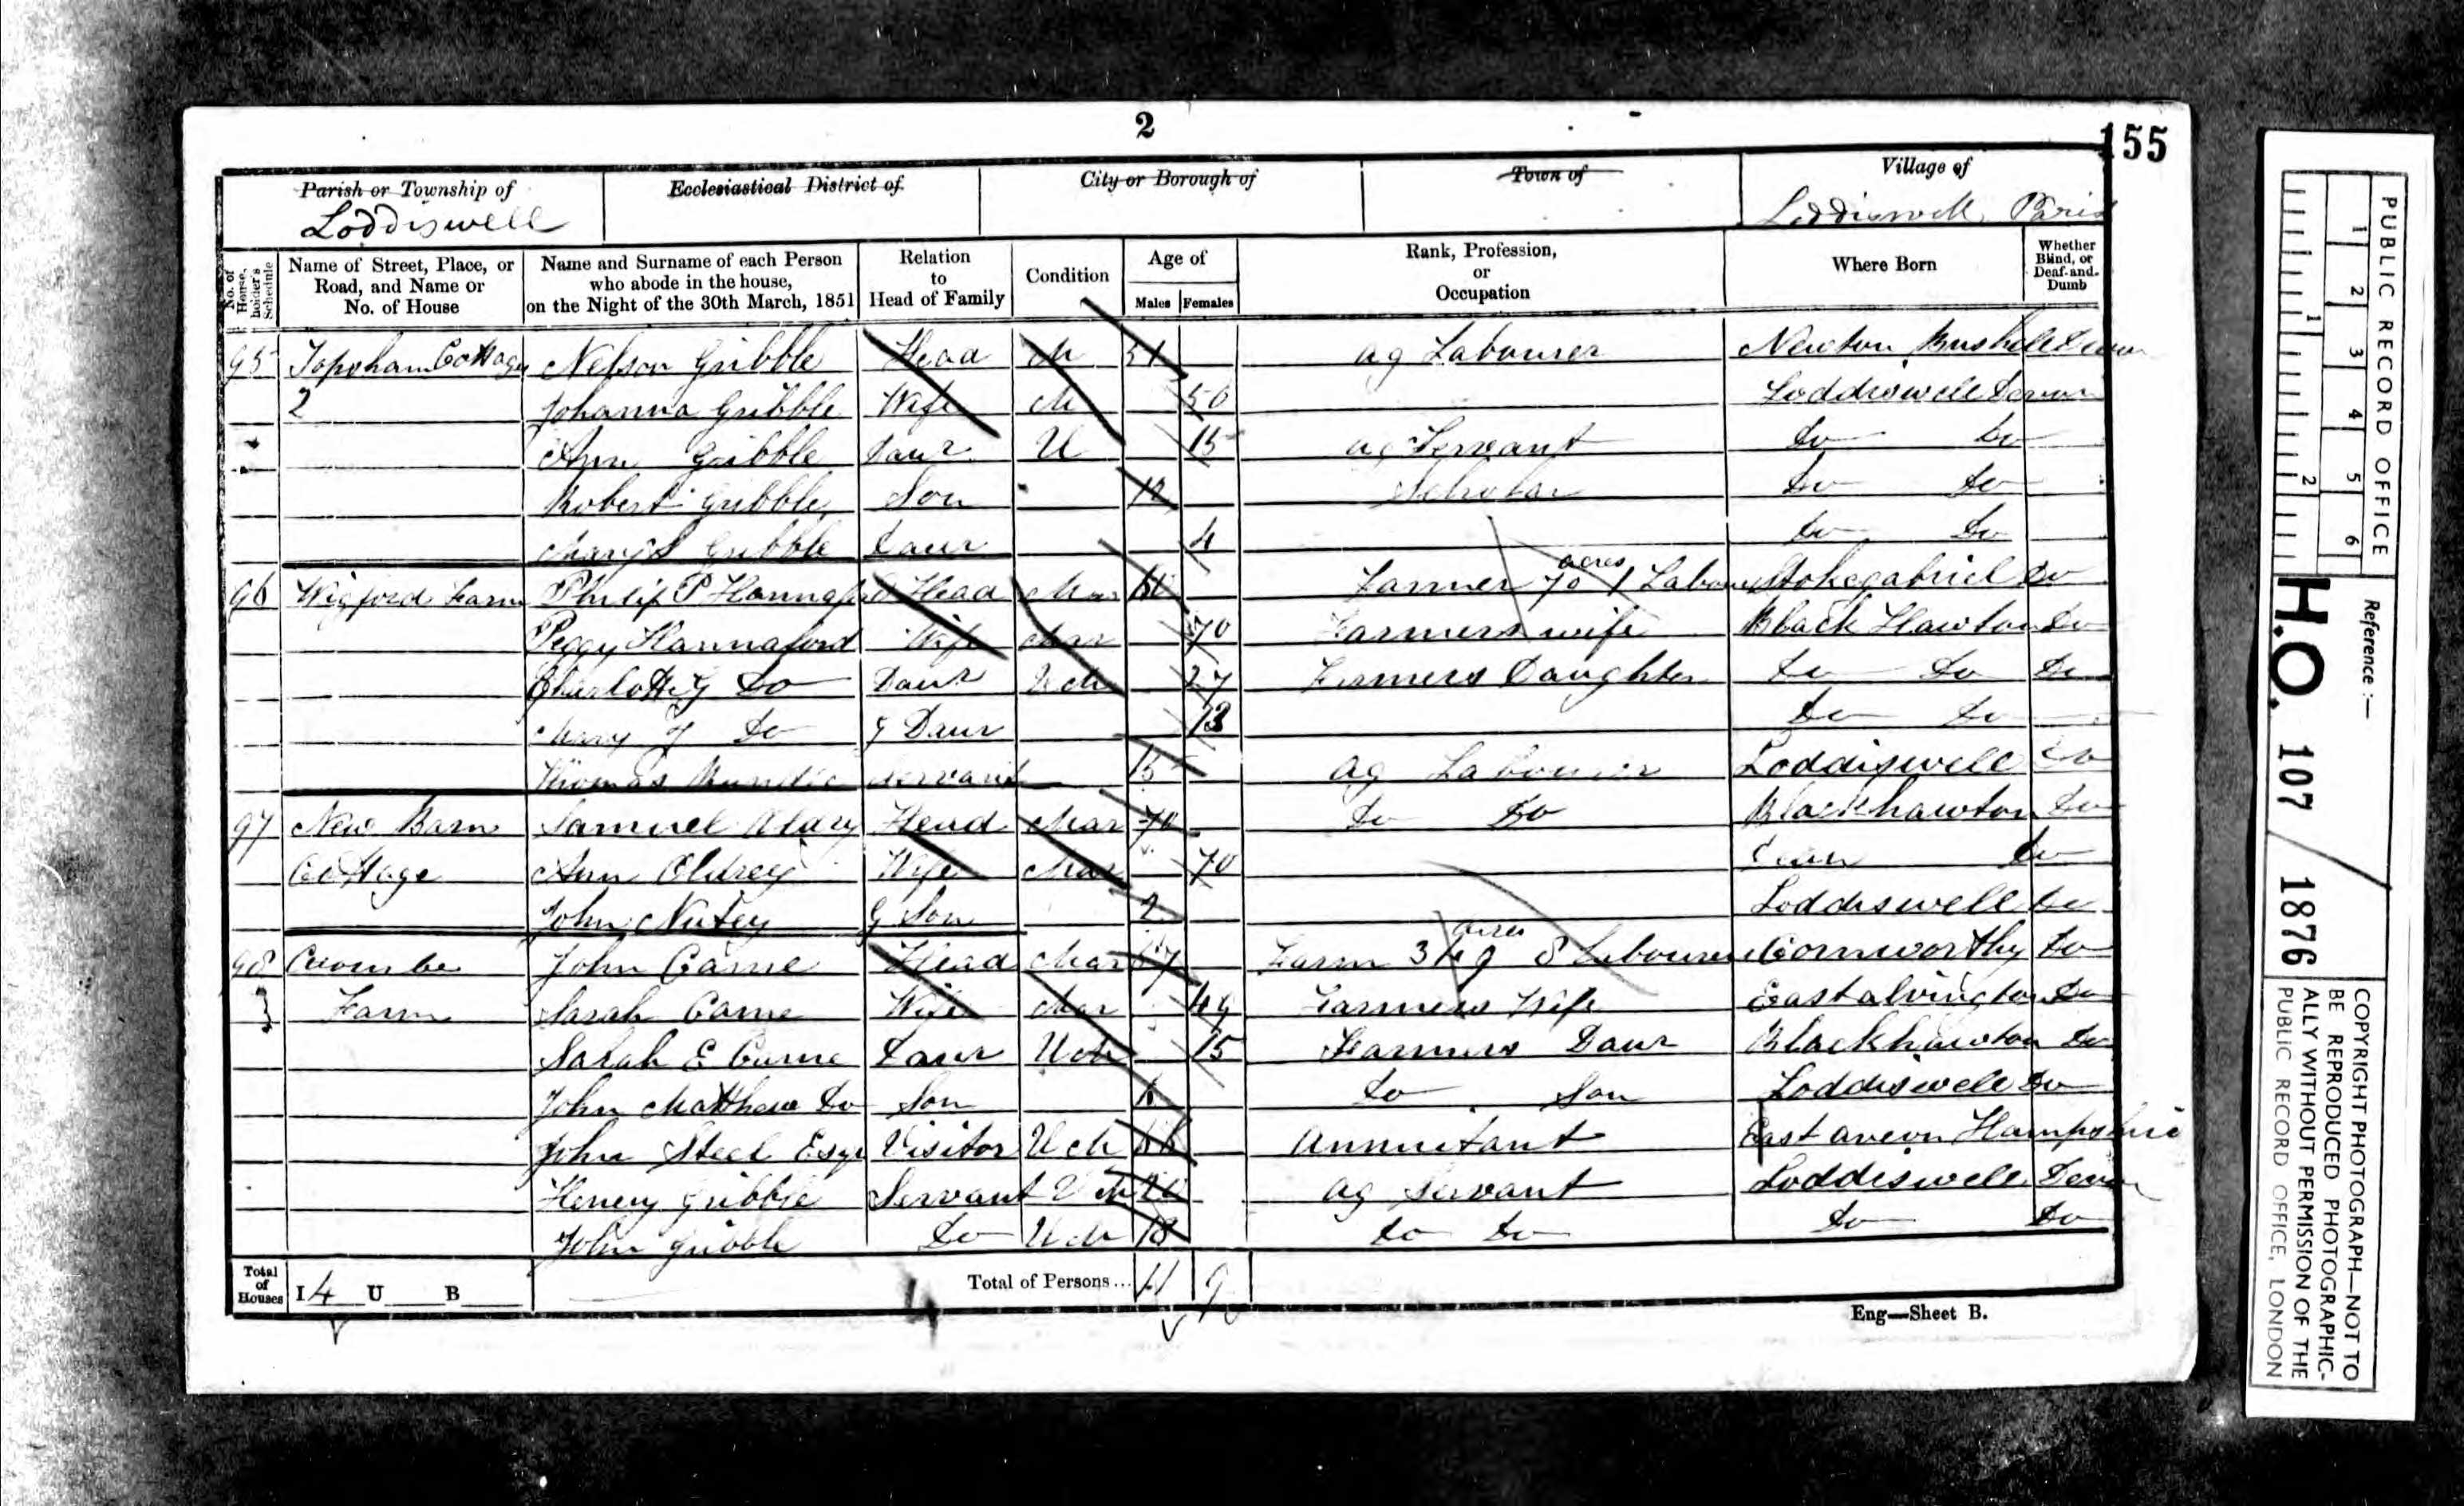 2
155
Parish or Township of
Loddiswell
Ecclesiastical District of
City or Borough of
Town of
Village of
Loddiswell Paris
No. of House-holder's Schedule
Name of Street, Place, or Road, and Name or No. of House
Name and Surname of each Person who abode in the house, on the Night of the 30th March, 1851
Relation to Head of Family
Condition
Age of
Males Females
Rank, Profession, or Occupation
Where Born
Whether Blind, or Deaf-and-Dumb
95 Topsham Cottage Nelson Gribble Head M 51 ag Labourer Newton Bushell Devon
2 Johanna Gribble Wife M 50 Loddiswell Devon
Ann Gribble Daur U 15 ag Servant Do Do
Robert Gribble Son 12 Scholar Do Do
Gribble Daur 4 Do Do
96 Wigford Farm Philip P Hannaford Head Mar Farmer 70 acres 1 Labour Stokegabriel Do
Peggy Hannaford Wife Mar 70 Farmers wife Black Hawton Do
Charlotte G Do Daur U M 27 Farmers Daughter Do Do Do
Mary J Do G Daur 13 Do Do
Thomas Servant 15 ag Labourer Loddiswell Do
97 New Barn Samuel Head Mar 70 Do Do Blackhawton Do
Cottage Ann Oldrey Wife Mar 70 Do
John G Son 2 Loddiswell Do
98 Coombe John Came Head Mar 57 Farm acres 8 Labourers Cornworthy Do
Farm Sarah Came Wife Mar 49 Farmers Wife Eastalvington Do
Sarah E Came Daur U M 15 Farmers Daur Blackhawton Do
John Matthew Do Son Do Son Loddiswell Do
John Steel Esqr Visitor U M Annuitant East Hampshire
Henery Gribble Servant U M ag Servant Loddiswell Devon
John Gribble Do U M 18 Do Do Do Do
Total of Houses I 4 U B
Total of Persons... 11 9
Eng—Sheet B.
PUBLIC RECORD OFFICE
1 2 3 4 5 6
1 2
Reference :—
H.O. 107 / 1876
COPYRIGHT PHOTOGRAPH—NOT TO
BE REPRODUCED PHOTOGRAPHIC-
ALLY WITHOUT PERMISSION OF THE
PUBLIC RECORD OFFICE, LONDON